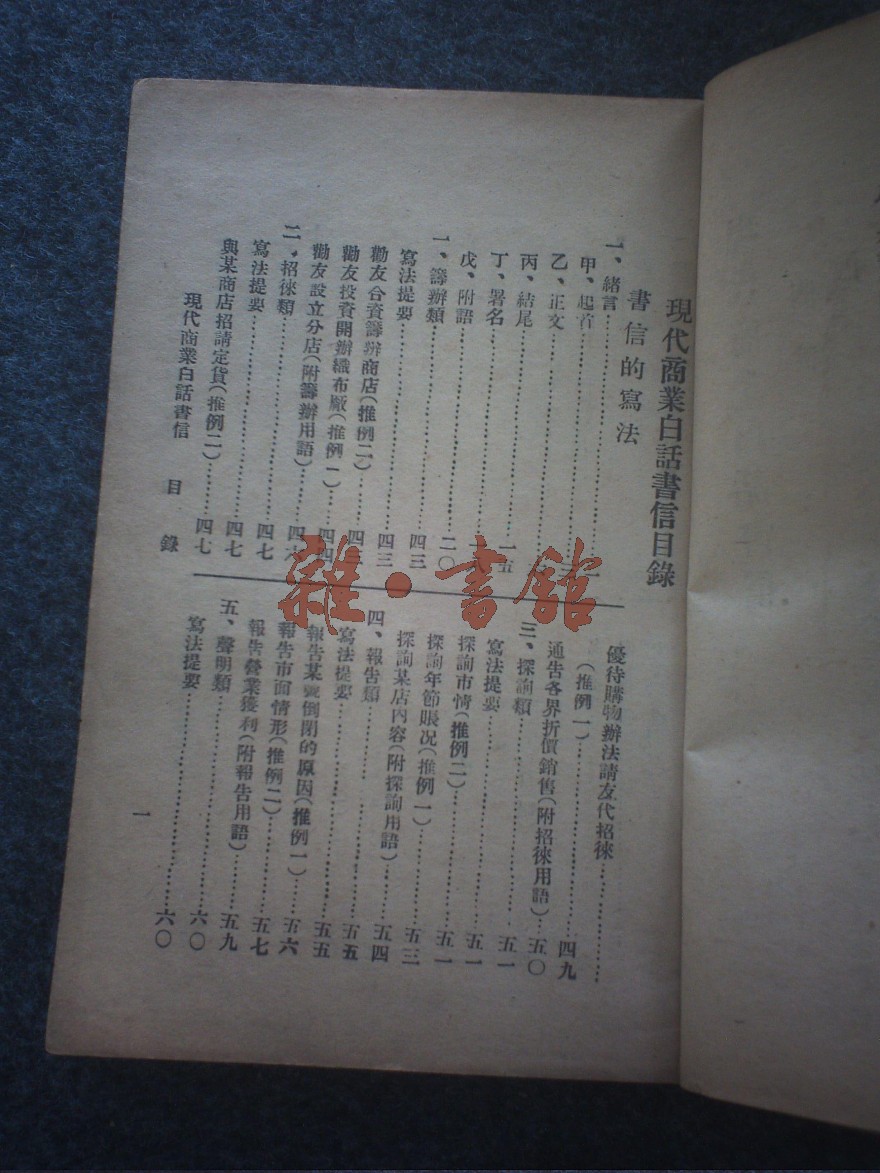 現代商業白話書信目錄
書信的寫法
一、緒言……一
甲、起首……
乙、正文……
丙、結尾……一五
丁、署名……
戊、附語……二〇
一、籌辦類……四三
寫法提要……四三
勸友合資籌辦商店(推例二)……四三
勸友投資開辦織布廠(推例一)……四四
勸友設立分店(附籌辦用語)……四六
二、招徠類……四七
寫法提要……四七
與某商店招請定貨(推例二)……四七
優待購物辦法請友代招徠……
(推例一)……四九
通告各界折價銷售(附招徠用語)……五〇
三、探詢類……五一
寫法提要……五一
探詢市情(推例二)……五一
探詢年節賬况(推例一)……五三
探詢某店內容(附探詢用語)……五四
四、報告類……五五
寫法提要……五五
報告某號倒閉的原因(推例一)……五六
報告市面情形(推例二)……五七
報告營業獲利(附報告用語)……五九
五、聲明類……六〇
寫法提要……六〇
現代商業白話書信 目錄
一
雜·書館